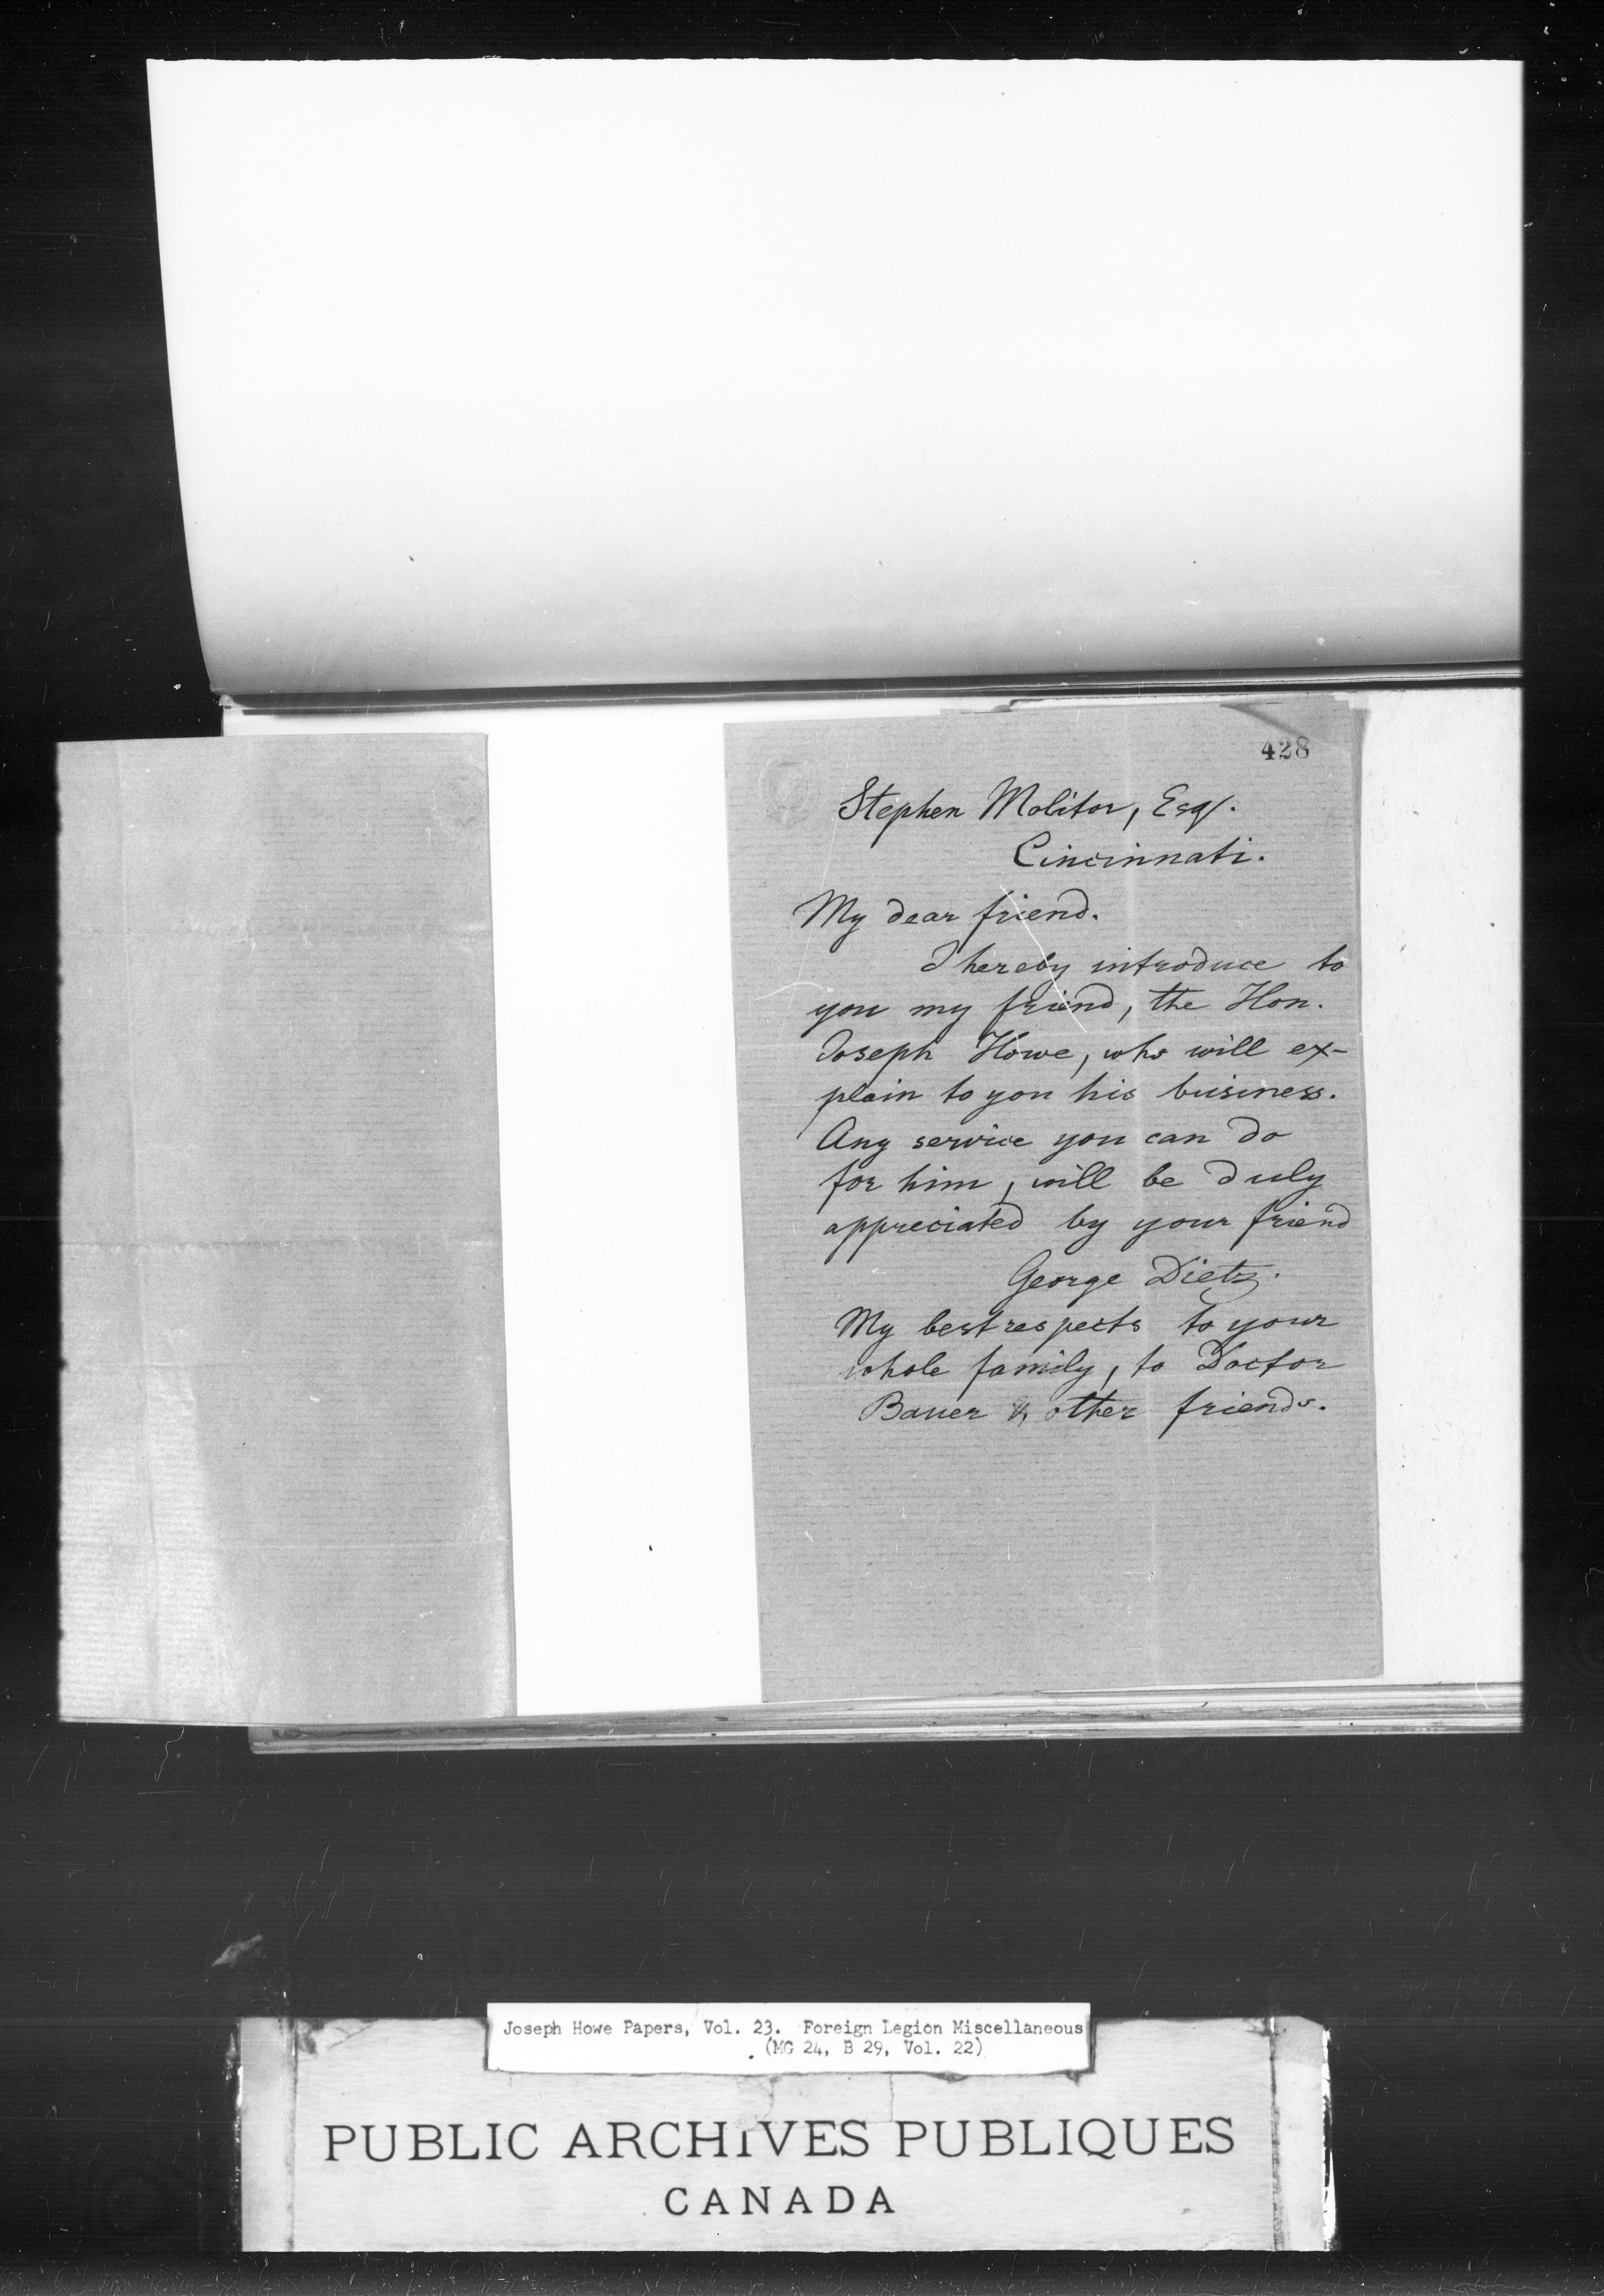 428
Stephen Molitor, Esq.
Cincinnati.
My dear friend.
I hereby introduce to
you my friend, the Hon.
Joseph Howe, who will ex-
plain to you his business.
Any service you can do
for him, will be duly
appreciated by your friend
George Dietz.
My best respects to your
whole family, to Doctor
Bauer & other friends.
Joseph Howe Papers, Vol. 23. Foreign Legion Miscellaneous
(MG 24, B 29, Vol. 22)
PUBLIC ARCHIVES PUBLIQUES
CANADA